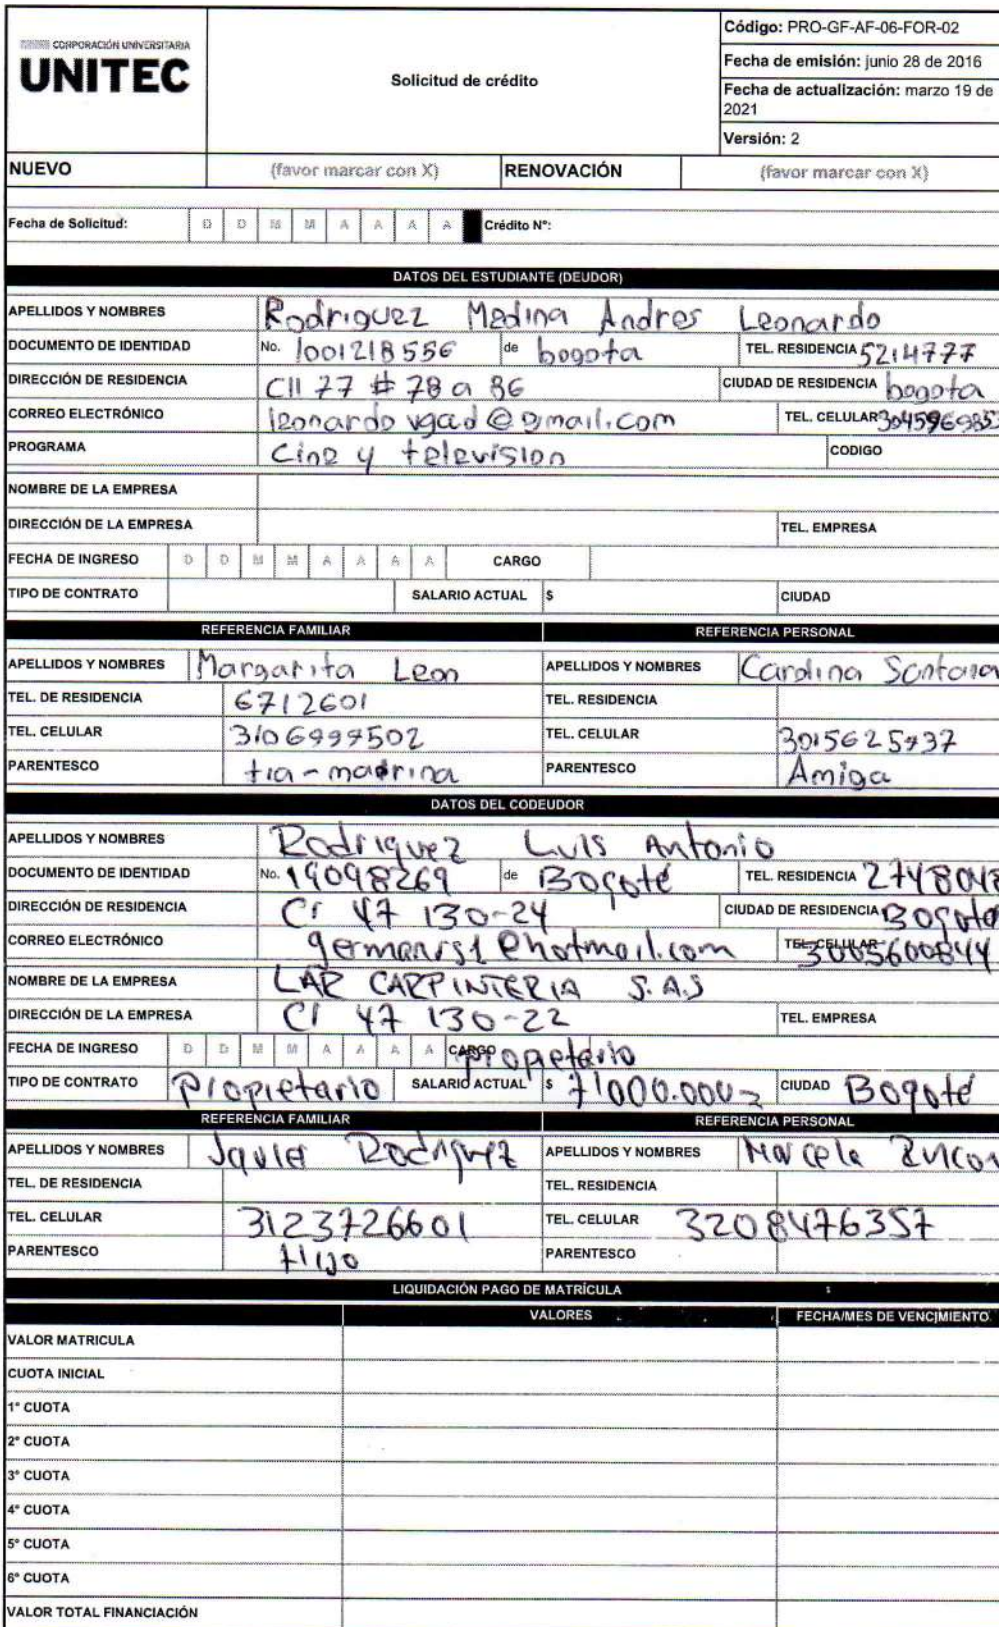 CORPORACIÓN UNIVERSITARIA
UNITEC
Solicitud de crédito
Código: PRO-GF-AF-06-FOR-02
Fecha de emisión: junio 28 de 2016
Fecha de actualización: marzo 19 de 2021
Versión: 2
NUEVO (favor marcar con X) RENOVACIÓN (favor marcar con X)
Fecha de Solicitud: D D M M A A A A Crédito N°:
DATOS DEL ESTUDIANTE (DEUDOR)
APELLIDOS Y NOMBRES Rodriguez Medina Andres Leonardo
DOCUMENTO DE IDENTIDAD No. 1001218556 de bogota TEL. RESIDENCIA 5214777
DIRECCIÓN DE RESIDENCIA Cll 77 # 78 a 86 CIUDAD DE RESIDENCIA bogota
CORREO ELECTRÓNICO leonardo vgad@gmail.com TEL. CELULAR
PROGRAMA Cine y television CODIGO
NOMBRE DE LA EMPRESA
DIRECCIÓN DE LA EMPRESA TEL. EMPRESA
FECHA DE INGRESO D D M M A A A A CARGO
TIPO DE CONTRATO SALARIO ACTUAL $ CIUDAD
REFERENCIA FAMILIAR REFERENCIA PERSONAL
APELLIDOS Y NOMBRES Margarita Leon APELLIDOS Y NOMBRES Carolina Santana
TEL. DE RESIDENCIA 6712601 TEL. RESIDENCIA
TEL. CELULAR 3106999502 TEL. CELULAR
PARENTESCO tia-madrina PARENTESCO Amiga
DATOS DEL CODEUDOR
APELLIDOS Y NOMBRES Rodriguez Luis Antonio
DOCUMENTO DE IDENTIDAD No. 19098269 de Bogotá TEL. RESIDENCIA 2748048
DIRECCIÓN DE RESIDENCIA Cr 47 130-24 CIUDAD DE RESIDENCIA Bogota
CORREO ELECTRÓNICO germanrs1@hotmail.com TEL. CELULAR 3005600844
NOMBRE DE LA EMPRESA LAR CARPINTERIA S.A.S
DIRECCIÓN DE LA EMPRESA Cr 47 130-22 TEL. EMPRESA
FECHA DE INGRESO D D M M A A A A CARGO propietario
TIPO DE CONTRATO Propietario SALARIO ACTUAL $ CIUDAD Bogotá
REFERENCIA FAMILIAR REFERENCIA PERSONAL
APELLIDOS Y NOMBRES Javier Rodriguez APELLIDOS Y NOMBRES Marcela Rincon
TEL. DE RESIDENCIA TEL. RESIDENCIA
TEL. CELULAR 3123726601 TEL. CELULAR 3208476357
PARENTESCO Hijo PARENTESCO
LIQUIDACIÓN PAGO DE MATRÍCULA
VALORES FECHA/MES DE VENCIMIENTO
VALOR MATRICULA
CUOTA INICIAL
1° CUOTA
2° CUOTA
3° CUOTA
4° CUOTA
5° CUOTA
6° CUOTA
VALOR TOTAL FINANCIACIÓN